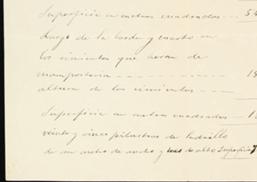 Superficie en metros cuadrados 54
Largo de la
los cimientos que
mamposteria 18
altura de los cimientos
Superficie en metros cuadrados 1
veinte y cinco pilastras de ladrillo
de un metro de ancho y de alto Superficie